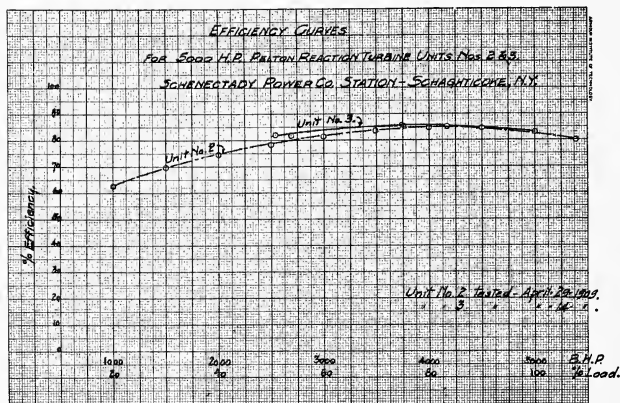 EFFICIENCY CURVES
FOR 5000 H.P. PELTON REACTION TURBINE UNITS NOS 2 & 3.
SCHENECTADY POWER CO. STATION - SCHAGHTICOKE, N.Y.
100
80
70
60
50
40
30
20
10
0
% Efficiency.
Unit No. 3.
Unit No. 2
Unit No. 2 tested - April 29-1909.
" " 3 " " 14 " .
1000 2000 3000 4000 5000 B.H.P.
20 40 60 80 100 % Load.